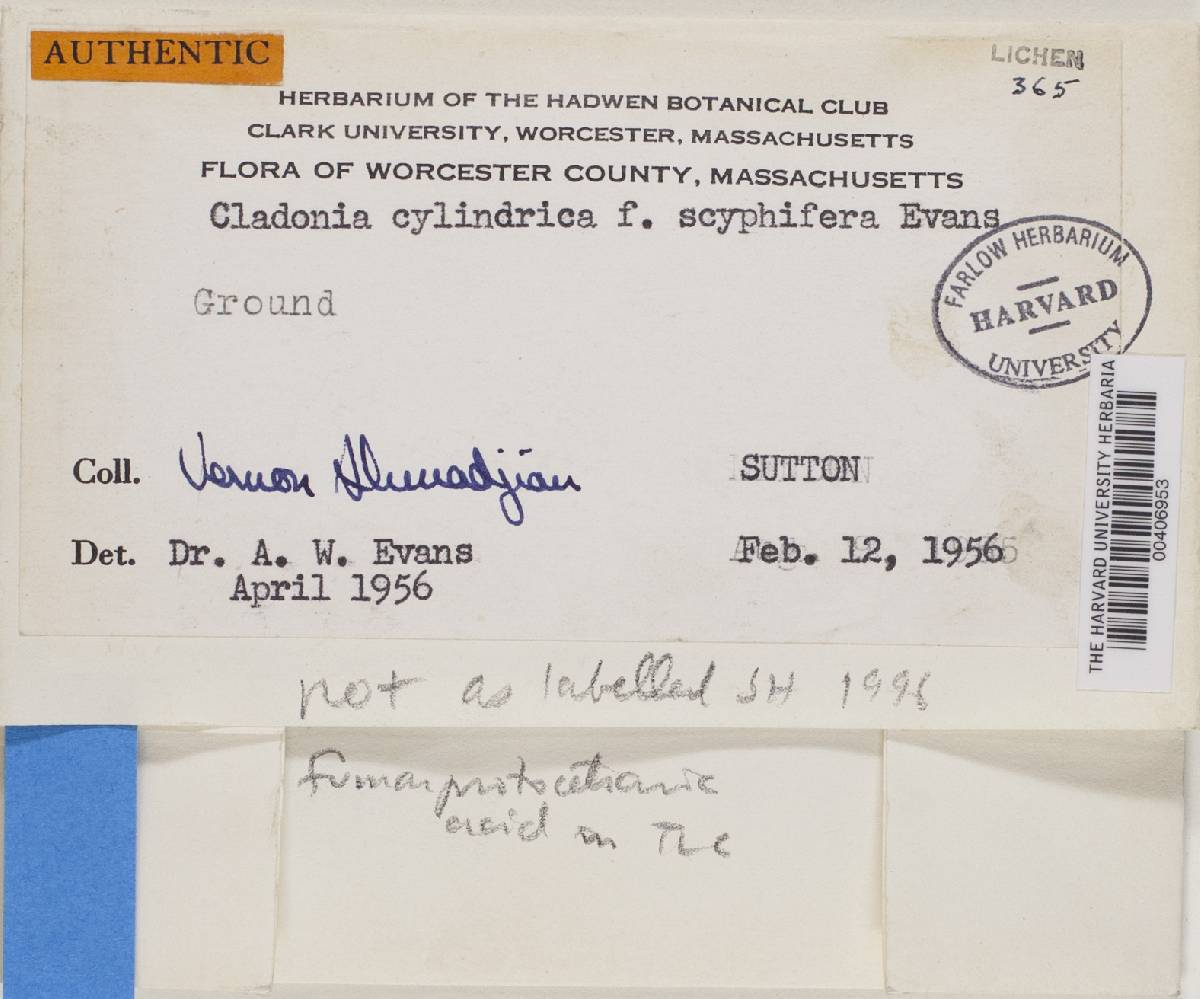 AUTHENTIC
LICHEN
365
HERBARIUM OF THE HADWEN BOTANICAL CLUB
CLARK UNIVERSITY, WORCESTER, MASSACHUSETTS
FLORA OF WORCESTER COUNTY, MASSACHUSETTS
Cladonia cylindrica f. scyphifera Evans
FARLOW HERBARIUM
HARVARD
UNIVERSITY
Ground
Coll. Vernon Ahmadjian
SUTTON
Det. Dr. A. W. Evans
Feb. 12, 1956
April 1956
THE HARVARD UNIVERSITY HERBARIA
00406953
not as labelled SH 1996
Fumarprotocetraric
acid in TLC